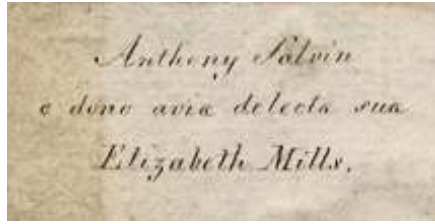 Anthony Salvin
e dono aviæ delectæ suæ
Elizabeth Mills.